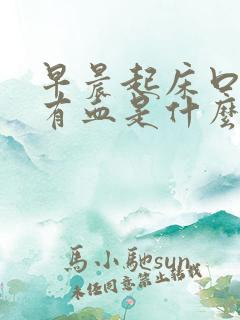 早晨起床口
有血是什麼
馬小馳sun
未經同意禁止轉載